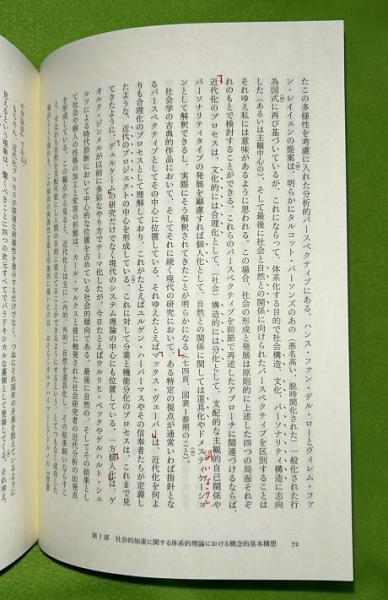 たこの多様性を考慮に入れた分析的パースペクティブにある。ハンス・ファン・デル・ローとヴィレム・ファ
ン・レイエンの提案は、明らかにタルコット・パーソンズのあの(悪名高い、脱時間化された)一般化された行
為図式に再び基づいているが、これにならって、体系化する目的で社会構造、文化、パーソナリティ構造に志向
した(あるいは主観中心の)、そして最後に社会と自然との関係に向けられたパースペクティブを区別することは
それゆえ私には意味があるように思われる。この場合、社会の形成と発展は原則的に上述した四つの局面それぞ
れのもとで検討することができる。これらのパースペクティブを前節で再述したアプローチに関連づけるならば、
近代化のプロセスは、文化的には合理化として、(社会)構造的には分化として、支配的な主観的自己関係や
パーソナリティタイプの発展を顧慮すれば個人化として、自然との関係に関しては道具化やドメスティケーショ
ンとして解釈できるし、実際にそう解釈されてきたことが明らかになる(七四頁、図表1参照のこと)。
社会学の古典的作品において、そしてそれに続く現代の研究において、ある特定の視点が通常いわば指針とな
るパースペクティブとしてその中心に位置している。それはたとえばマックス・ヴェーバーは、近代化を何よ
りも合理化のプロセスとして理解しており、これがたとえばユルゲン・ハーバーマスやその信奉者たちが定義し
たような、近代のプロジェクトの中心を形成している。これに対して分業と機能分化のプロセスは、これまで見
てきたように、デュルケームの研究だけでなく現代のシステム理論の中心にも位置している。一方個人化は、ゲ
オルク・ジンメルが以前に多彩なやり方でテーマ化したが、今日たとえばウルリヒ・ベックやゲルハルト・シュ
ルツによる時代診断において中心的な位置を占めている社会的傾向である。最後に自然の、そしてその結果とし
て社会や個人の性格の加工と変容の形態は、カール・マルクスと彼に触発された社会研究者の近代分析の出発点
を形成している。この観点から見ると、近代化とは主に(内的、外的)自然を道具化し、
第1部 社会的加速に関する体系的理論における概念的基本構想
72